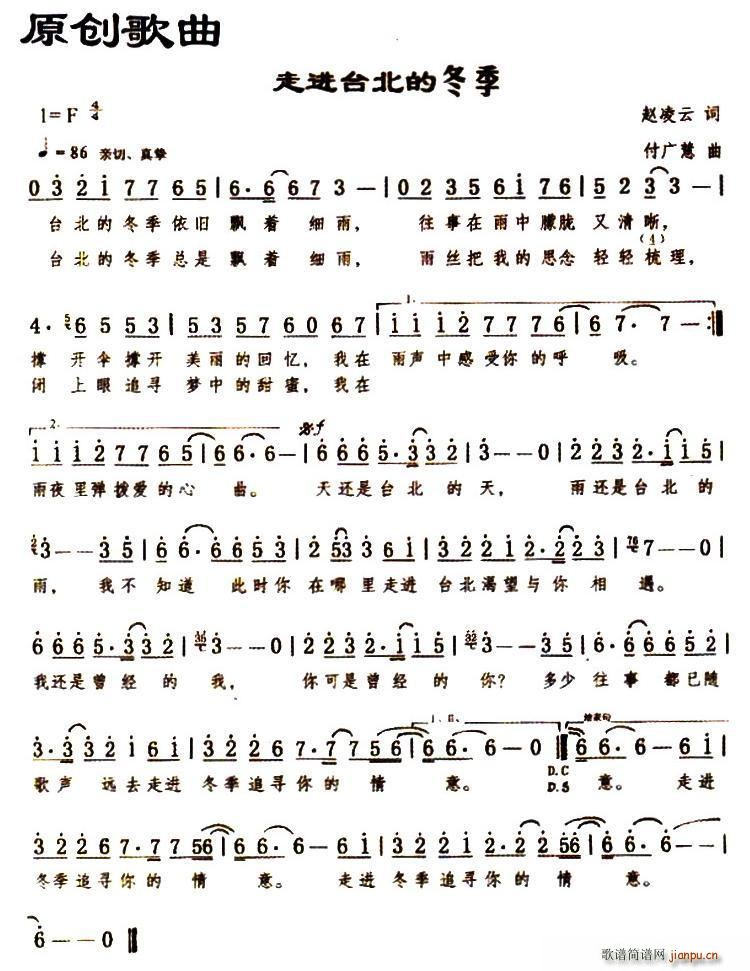 原创歌曲
走进台北的冬季
1=F 4/4
赵凌云 词
♩=86 亲切、真挚
付广慧 曲
0 3 2 1 7 7 6 5 | 6· 6 6 7 3 — | 0 2 3 5 6 1 7 6 | 5 2 3 3 — |
台北的冬季依旧飘着细雨， 往事在雨中朦胧又清晰，
(4)
台北的冬季总是飘着细雨， 雨丝把我的思念轻轻梳理，
4· 5 6 5 5 3 | 5 3 5 7 6 0 6 7 | 1 1 1 2 7 7 7 6 | 6 7· 7 — :||
1.
撑开伞撑开美丽的回忆，我在雨声中感受你的呼吸。
闭上眼追寻梦中的甜蜜，我在
2.
1 1 1 2 7 7 6 5 | 6 6· 6 — | 6 6 6 5· 3 3 2 | 3 — — 0 | 2 2 3 2· 1 1 5 |
雨夜里弹拨爱的心曲。 天还是台北的天， 雨还是台北的
3 — — 3 5 | 6 6· 6 6 5 3 | 2 5 3 3 6 1 | 3 2 2 1 2· 2 2 3 | 7 — — 0 |
雨，我不知道此时你在哪里走进台北渴望与你相遇。
6 6 6 5· 3 3 2 | 3 — — 0 | 2 2 3 2· 1 1 5 | 3 — — 3 5 | 6 6· 6 6 5 2 |
我还是曾经的我， 你可是曾经的你？多少往事都已随
3· 3 3 2 1 6 1 | 3 2 2 6 7· 7 | 7 7 5 6 | 6 6· 6 — 0 || 6 6· 6 6 1 |
歌声远去走进冬季追寻你的情意。 D.C 意。走进
D.S
3 2 2 6 7· 7 7 5 6 | 6 6· 6 6 1 | 3 2 2 1 2· 2 1 5 6 | 6 6· 6 — |
冬季追寻你的情意。走进冬季追寻你的情意。
6 — — 0 ||
歌谱简谱网
jianpu.cn